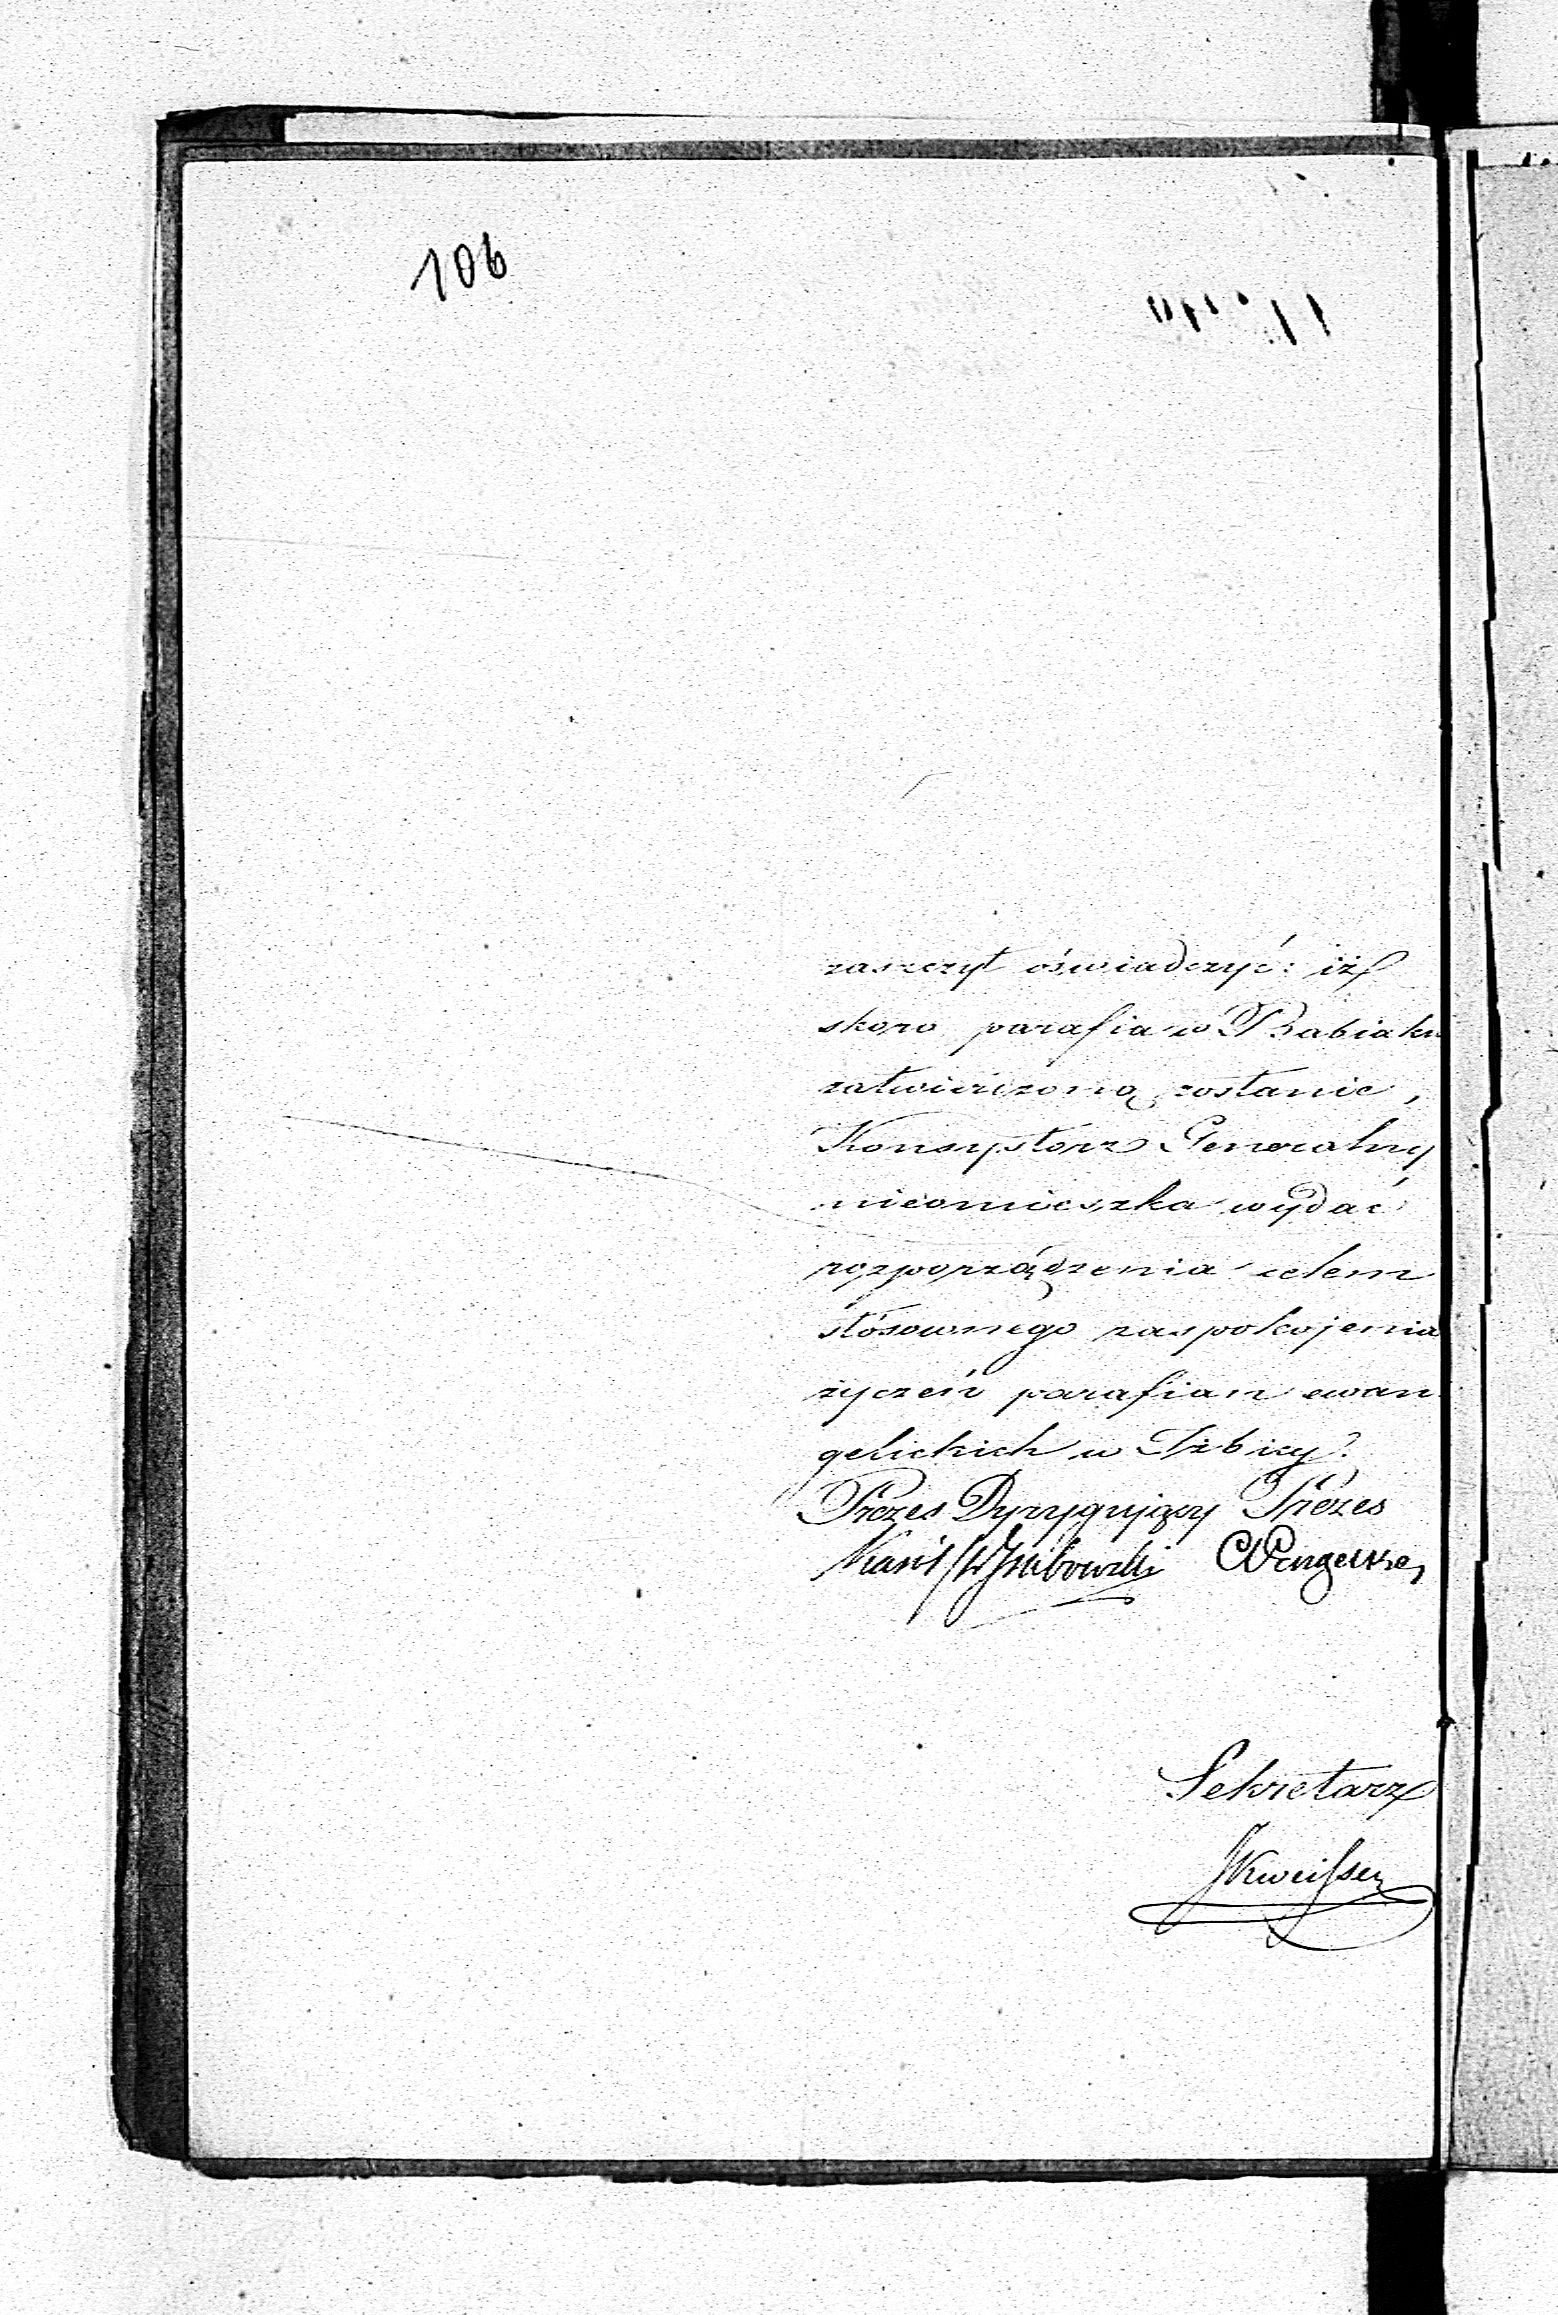 106
zaszczyt oświadczyć: iż
skoro parafia w Babiaku
zatwierdzoną zostanie,
Konsystorz Generalny
nieomieszka wydać
rozporządzenia celem
stósownego zaspokojenia
życzeń parafian ewan
gelickich w Izbicy.
Prezes Dyrygujący Prezes
Sekretarz